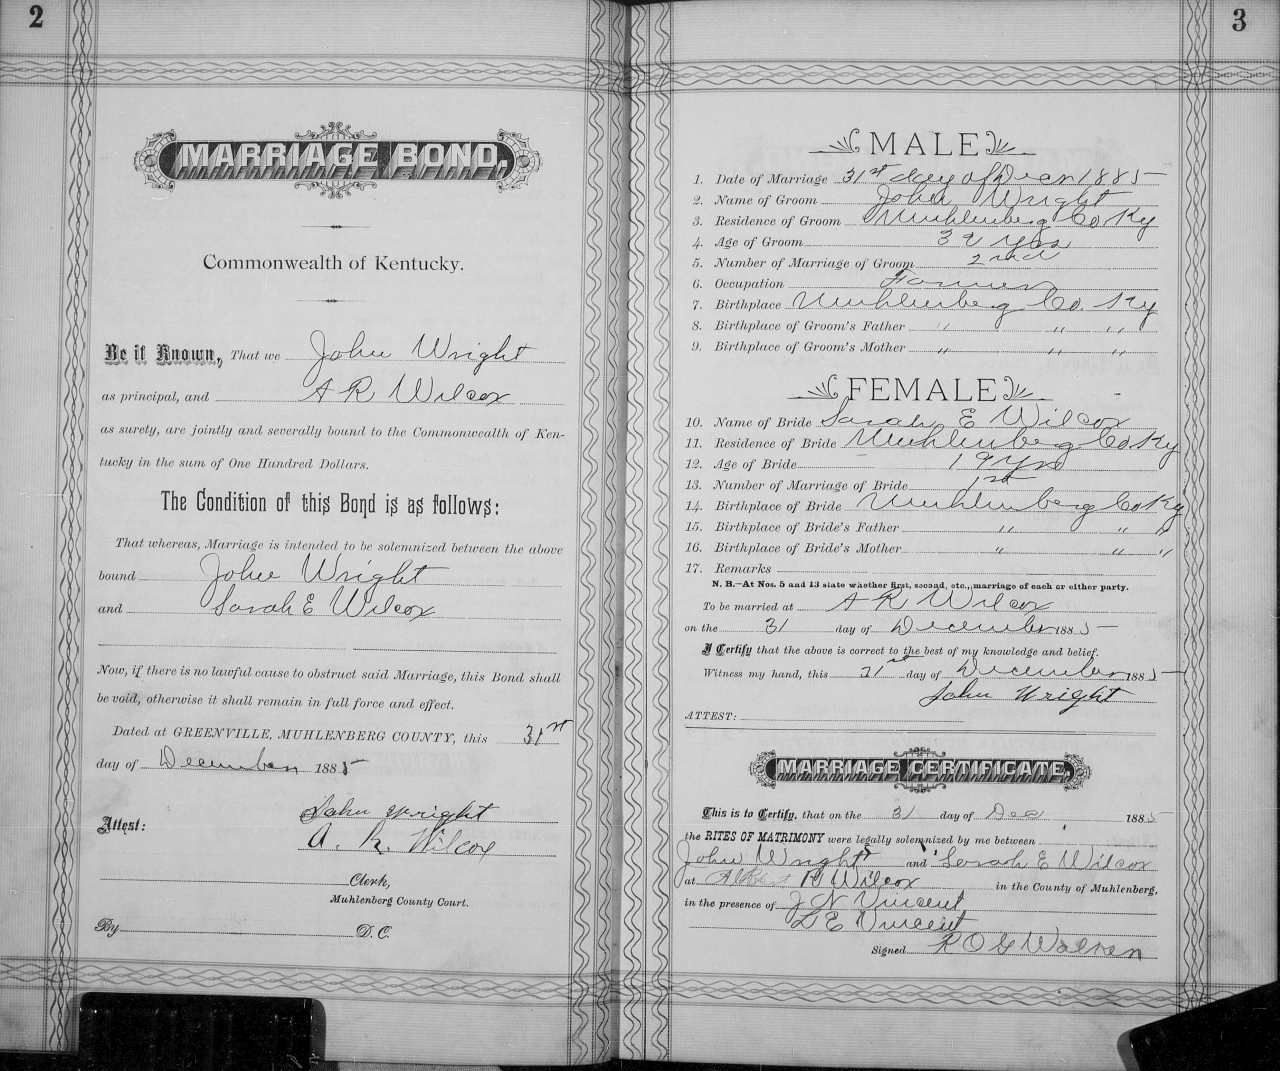 2
MARRIAGE BOND.
Commonwealth of Kentucky.
Be it Known, That we John Wright
as principal, and A R Wilcox
as surety, are jointly and severally bound to the Commonwealth of Ken-
tucky in the sum of One Hundred Dollars.
The Condition of this Bond is as follows:
That whereas, Marriage is intended to be solemnized between the above
bound John Wright
and Sarah E Wilcox
Now, if there is no lawful cause to obstruct said Marriage, this Bond shall
be void, otherwise it shall remain in full force and effect.
Dated at GREENVILLE, MUHLENBERG COUNTY, this 31st
day of December 1885
Attest: John Wright
A. R. Wilcox
Clerk,
Muhlenberg County Court.
By D. C.
3
MALE
1. Date of Marriage 31st day of Decr 1885
2. Name of Groom John Wright
3. Residence of Groom Muhlenberg Co Ky
4. Age of Groom yrs
5. Number of Marriage of Groom 2nd
6. Occupation Farmer
7. Birthplace Muhlenberg Co. Ky
8. Birthplace of Groom's Father " " " "
9. Birthplace of Groom's Mother " " "
FEMALE
10. Name of Bride Sarah E Wilcox
11. Residence of Bride Muhlenberg Co. Ky
12. Age of Bride 19 yrs
13. Number of Marriage of Bride 1st
14. Birthplace of Bride Muhlenberg Co Ky
15. Birthplace of Bride's Father " " "
16. Birthplace of Bride's Mother " " "
17. Remarks
N. B.—At Nos. 5 and 13 state whether first, second, etc., marriage of each or either party.
To be married at A R Wilcox
on the 31 day of December 1885
I Certify that the above is correct to the best of my knowledge and belief.
Witness my hand, this 31st day of December 1885
John Wright
ATTEST:
MARRIAGE CERTIFICATE.
This is to Certify, that on the 31 day of Dec 1885
the RITES OF MATRIMONY were legally solemnized by me between
John Wright and Sarah E Wilcox
at R Wilcox in the County of Muhlenberg,
in the presence of J N Vincent
L E Vincent
Signed R O G